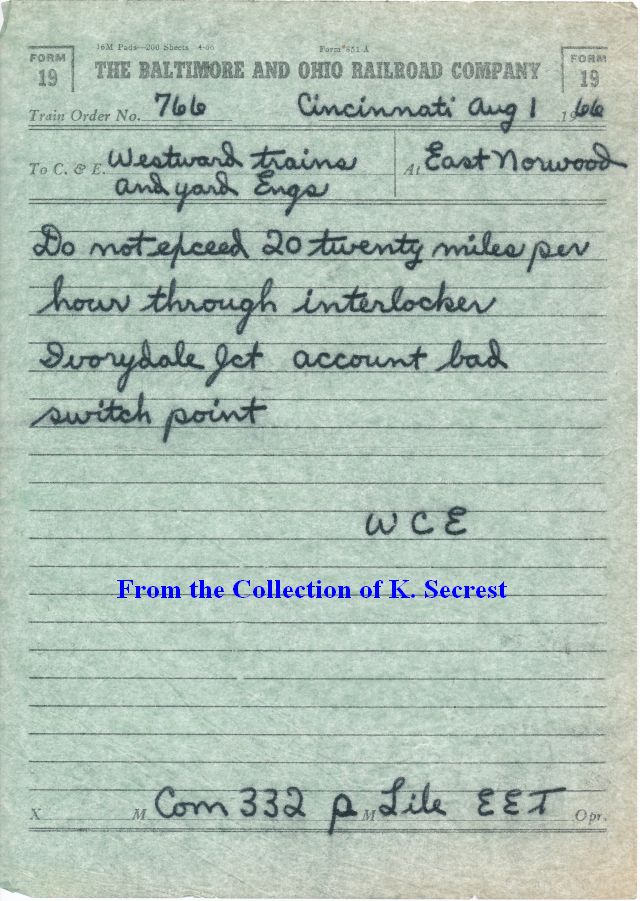 16M Pads—200 Sheets 4-66 Form 851 A
FORM 19 THE BALTIMORE AND OHIO RAILROAD COMPANY FORM 19
Train Order No. 766 Cincinnati Aug 1 1966
To C. & E. Westward trains At East Norwood
and yard Engs
Do not exceed 20 twenty miles per
hour through interlocker
Ivorydale Jct account bad
switch point
W C E
From the Collection of K. Secrest
X M Com 332 p M Lile E E T Opr.